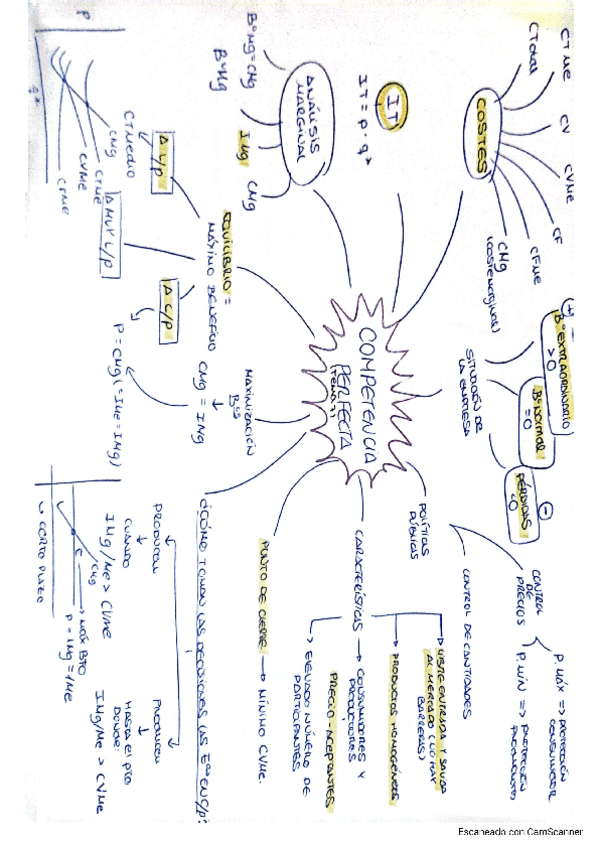 COMPETENCIA
PERFECTA
(TEMA 7)
COSTES
CTMe
CTotal
CV
CVMe
CF
CFMe
CMg
(coste marginal)
IT
IT = p · q
ANÁLISIS
MARGINAL
BºMg = CMg
BºMg
IMg
CMg
EQUILIBRIO =
MÁXIMO BENEFICIO
Δ L/p
CTMedio
Δ MUY L/p
Δ C/p
P
CMg
CTMe
CVMe
CFMe
MAXIMIZACIÓN
Bºs
CMg = IMg
P = CMg (= IMe = IMg)
¿CÓMO TOMAN LAS DECISIONES LAS Eªs EN C/p?
PRODUCEN
CUANDO
IMg/Me > CVMe
PRODUCEN
HASTA EL PTO
DONDE:
IMg/Me > CVMe
CMg
e
MÁX BTO
P = IMg = IMe
CORTO PLAZO
PUNTO DE CIERRE → MÍNIMO CVMe.
CARACTERÍSTICAS
LIBRE ENTRADA Y SALIDA
AL MERCADO (NO HAY
BARRERAS)
PRODUCTOS HOMOGÉNEOS
CONSUMIDORES Y
PRODUCTORES
PRECIO-ACEPTANTES
ELEVADO NÚMERO DE
PARTICIPANTES
POLÍTICAS
PÚBLICAS
CONTROL DE CANTIDADES
CONTROL
DE
PRECIOS
P. MÁX => PROTECCIÓN
CONSUMIDOR
P. MÍN => PROTECCIÓN
SITUACIÓN DE
LA EMPRESA
+
Bº EXTRAORDINARIO
>0
Bº NORMAL
=0
PÉRDIDAS
<0
-
Escaneado con CamScanner